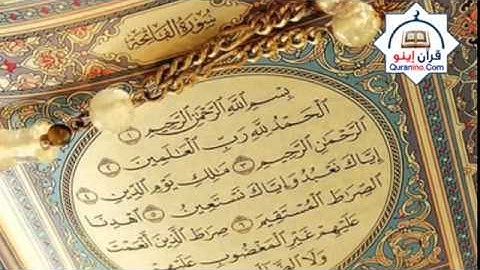 سورة الفاتحة
قرآن إينو
Quranino.Com
بِسْمِ اللَّهِ الرَّحْمَٰنِ الرَّحِيمِ ١
الْحَمْدُ لِلَّهِ رَبِّ الْعَالَمِينَ ٢
الرَّحْمَٰنِ الرَّحِيمِ ٣ مَالِكِ يَوْمِ الدِّينِ ٤
إِيَّاكَ نَعْبُدُ وَإِيَّاكَ نَسْتَعِينُ ٥ اهْدِنَا
الصِّرَاطَ الْمُسْتَقِيمَ ٦ صِرَاطَ الَّذِينَ أَنْعَمْتَ
عَلَيْهِمْ غَيْرِ الْمَغْضُوبِ عَلَيْهِمْ
وَلَا